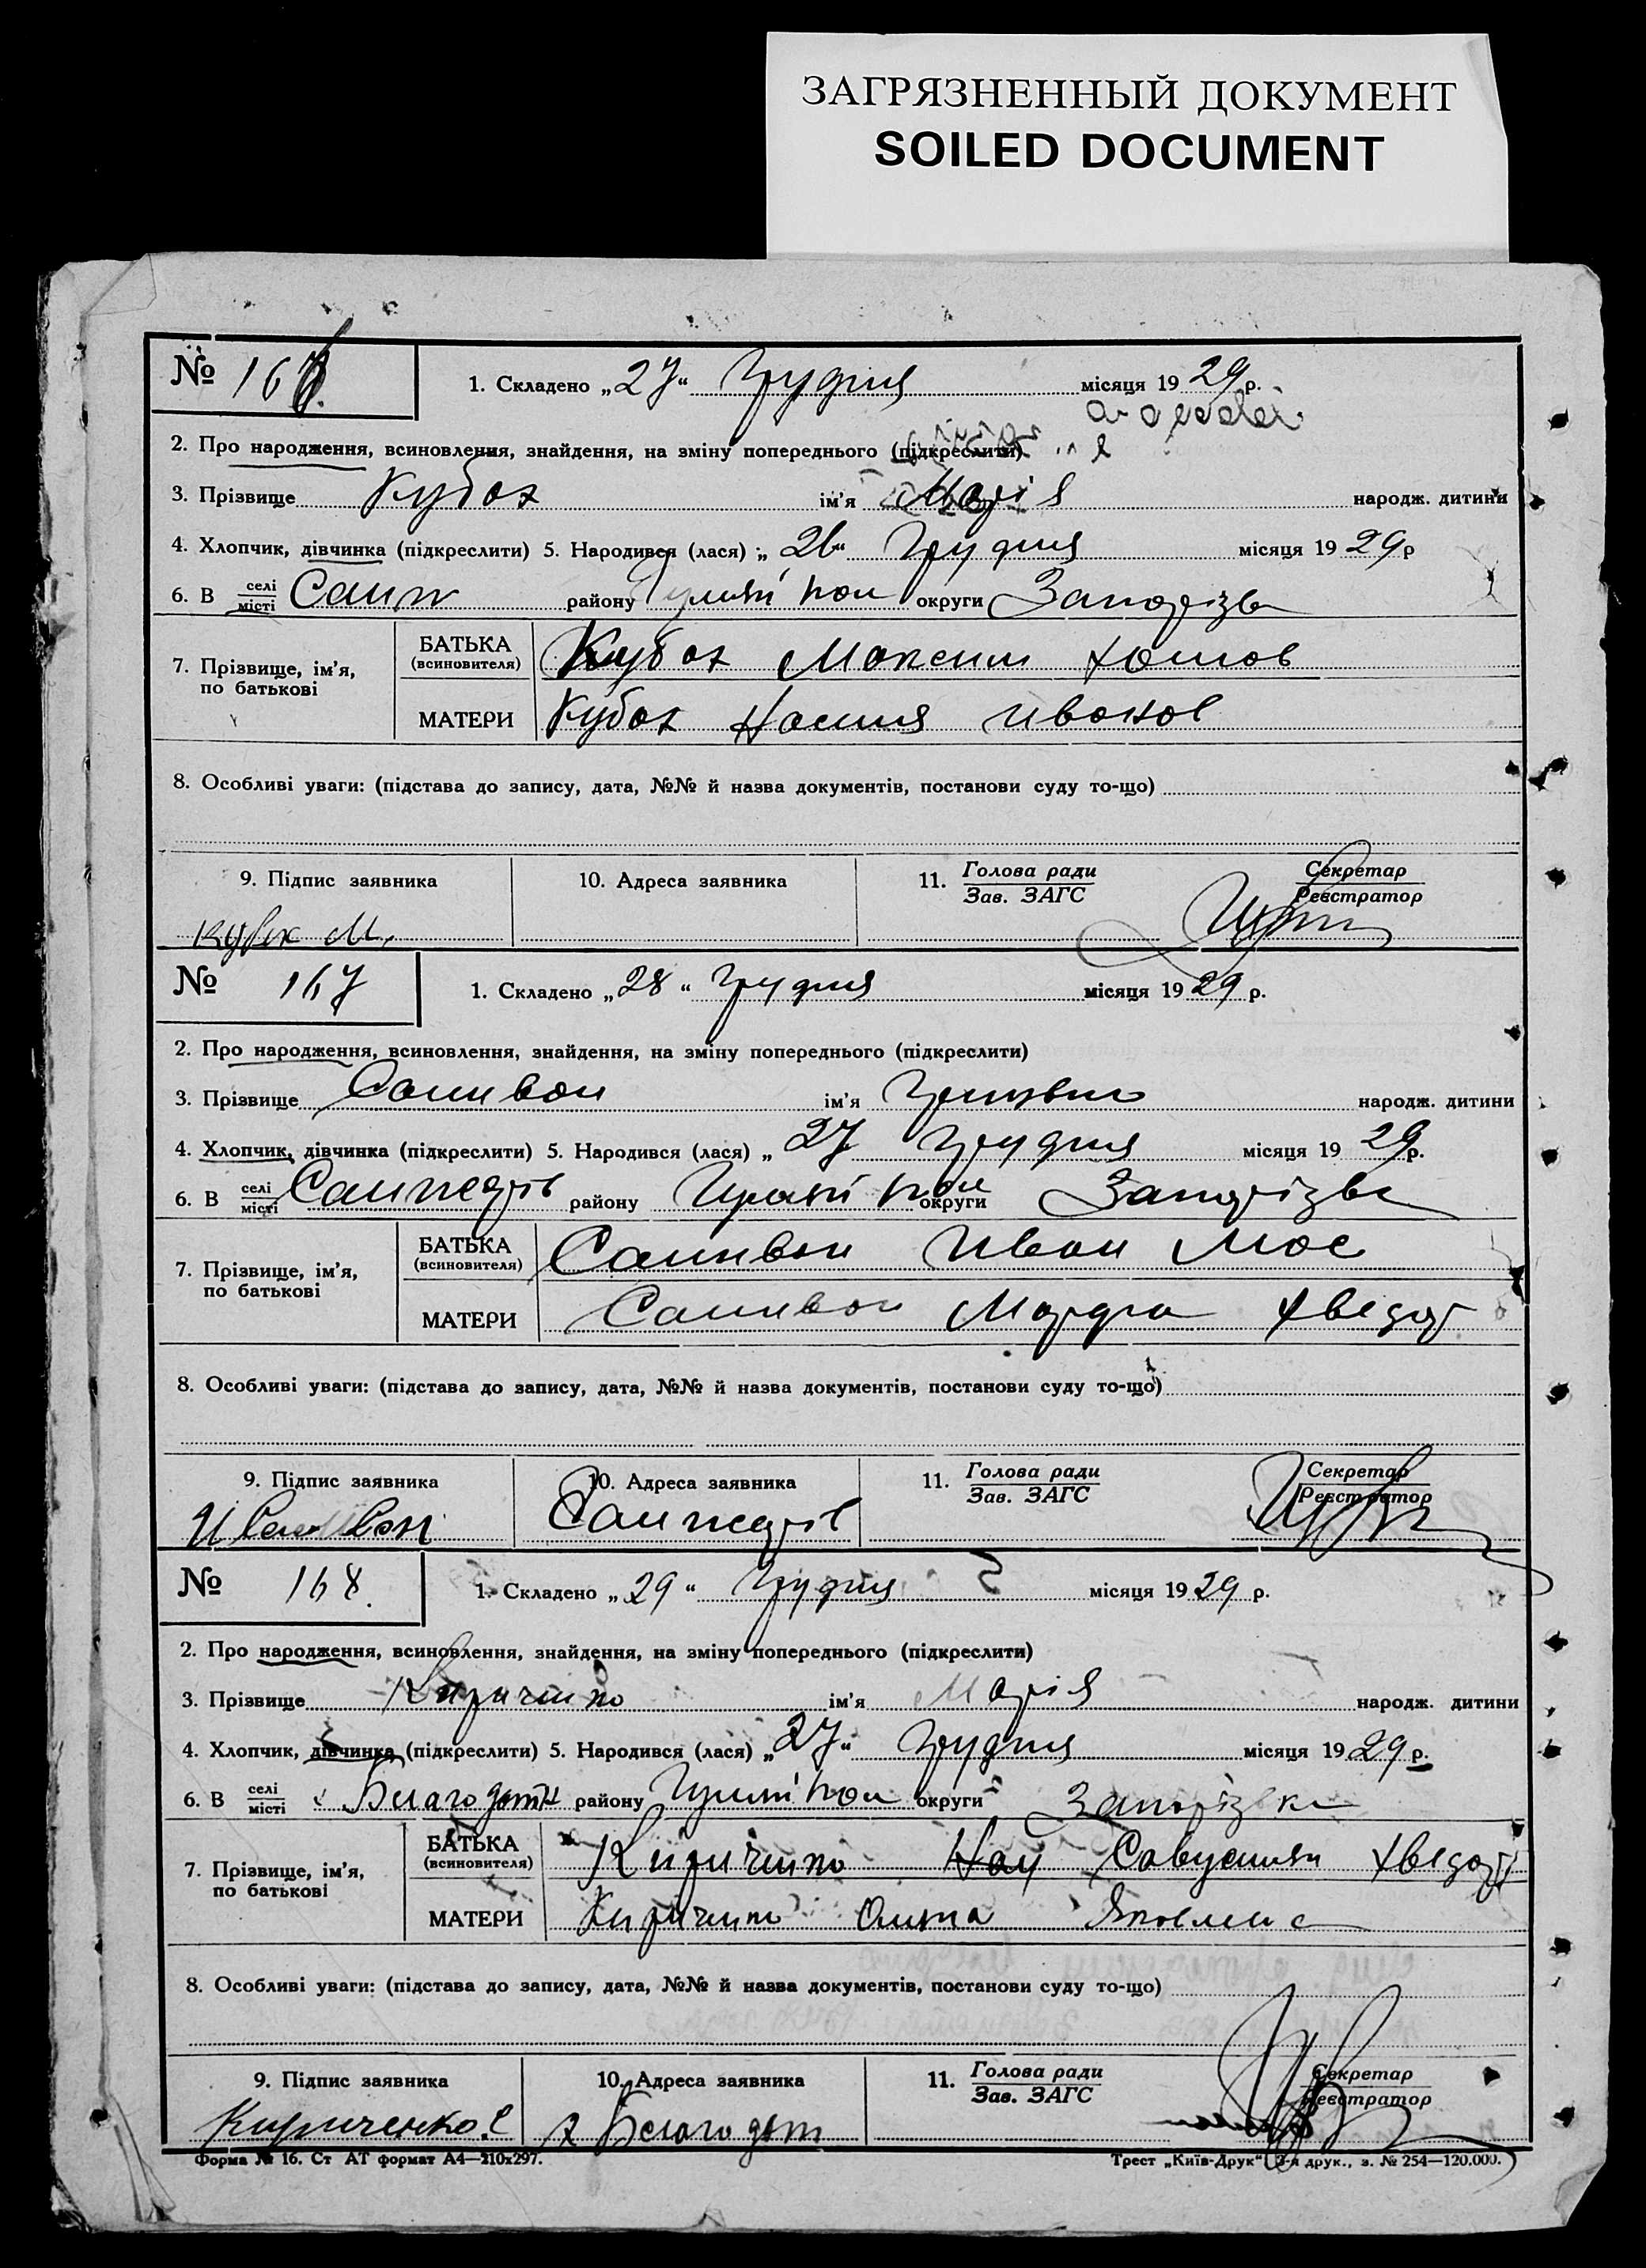 ЗАГРЯЗНЕННЫЙ ДОКУМЕНТ
SOILED DOCUMENT
№ 166. 1. Складено „27“ грудня місяця 1929 р.
2. Про народження, всиновлення, знайдення, на зміну попереднього (підкреслити)
3. Прізвище Кубах ім'я Марія народж. дитини
4. Хлопчик, дівчинка (підкреслити) 5. Народився (лася) „26“ грудня місяця 1929 р
6. В селі місті району Гуляй пол округи Запоріжв
7. Прізвище, ім'я, по батькові БАТЬКА (всиновителя) Кубах Максим Хомов
МАТЕРИ Кубах Настя Иванов
8. Особливі уваги: (підстава до запису, дата, №№ й назва документів, постанови суду то-що)
9. Підпис заявника 10. Адреса заявника 11. Голова ради Зав. ЗАГС Секретар Реєстратор
Кубах М.
№ 167 1. Складено „28“ грудня місяця 1929 р.
2. Про народження, всиновлення, знайдення, на зміну попереднього (підкреслити)
3. Прізвище Саливон ім'я народж. дитини
4. Хлопчик, дівчинка (підкреслити) 5. Народився (лася) „27 грудня місяця 1929 р.
6. В селі місті району Гуляй пол округи Запоріжв
7. Прізвище, ім'я, по батькові БАТЬКА (всиновителя) Саливон Иван Мос
МАТЕРИ Саливон Марфа Хведор
8. Особливі уваги: (підстава до запису, дата, №№ й назва документів, постанови суду то-що)
9. Підпис заявника 10. Адреса заявника 11. Голова ради Зав. ЗАГС Секретар Реєстратор
№ 168. 1. Складено „29“ грудня місяця 1929 р.
2. Про народження, всиновлення, знайдення, на зміну попереднього (підкреслити)
3. Прізвище Кириченко ім'я Марія народж. дитини
4. Хлопчик, дівчинка (підкреслити) 5. Народився (лася) „27“ грудня місяця 1929 р.
6. В селі місті х Благодатн району Гуляй пол округи Запоріжк
7. Прізвище, ім'я, по батькові БАТЬКА (всиновителя) Кириченко Савустян Хведор
МАТЕРИ Кириченко Ольга Яковлив
8. Особливі уваги: (підстава до запису, дата, №№ й назва документів, постанови суду то-що)
9. Підпис заявника 10. Адреса заявника 11. Голова ради Зав. ЗАГС Секретар Реєстратор
Кириченко С х Благодатн
Форма № 16. Ст АТ формат А4—210х297. Трест „Київ-Друк“ 3-я друк., з. № 254—120.000.